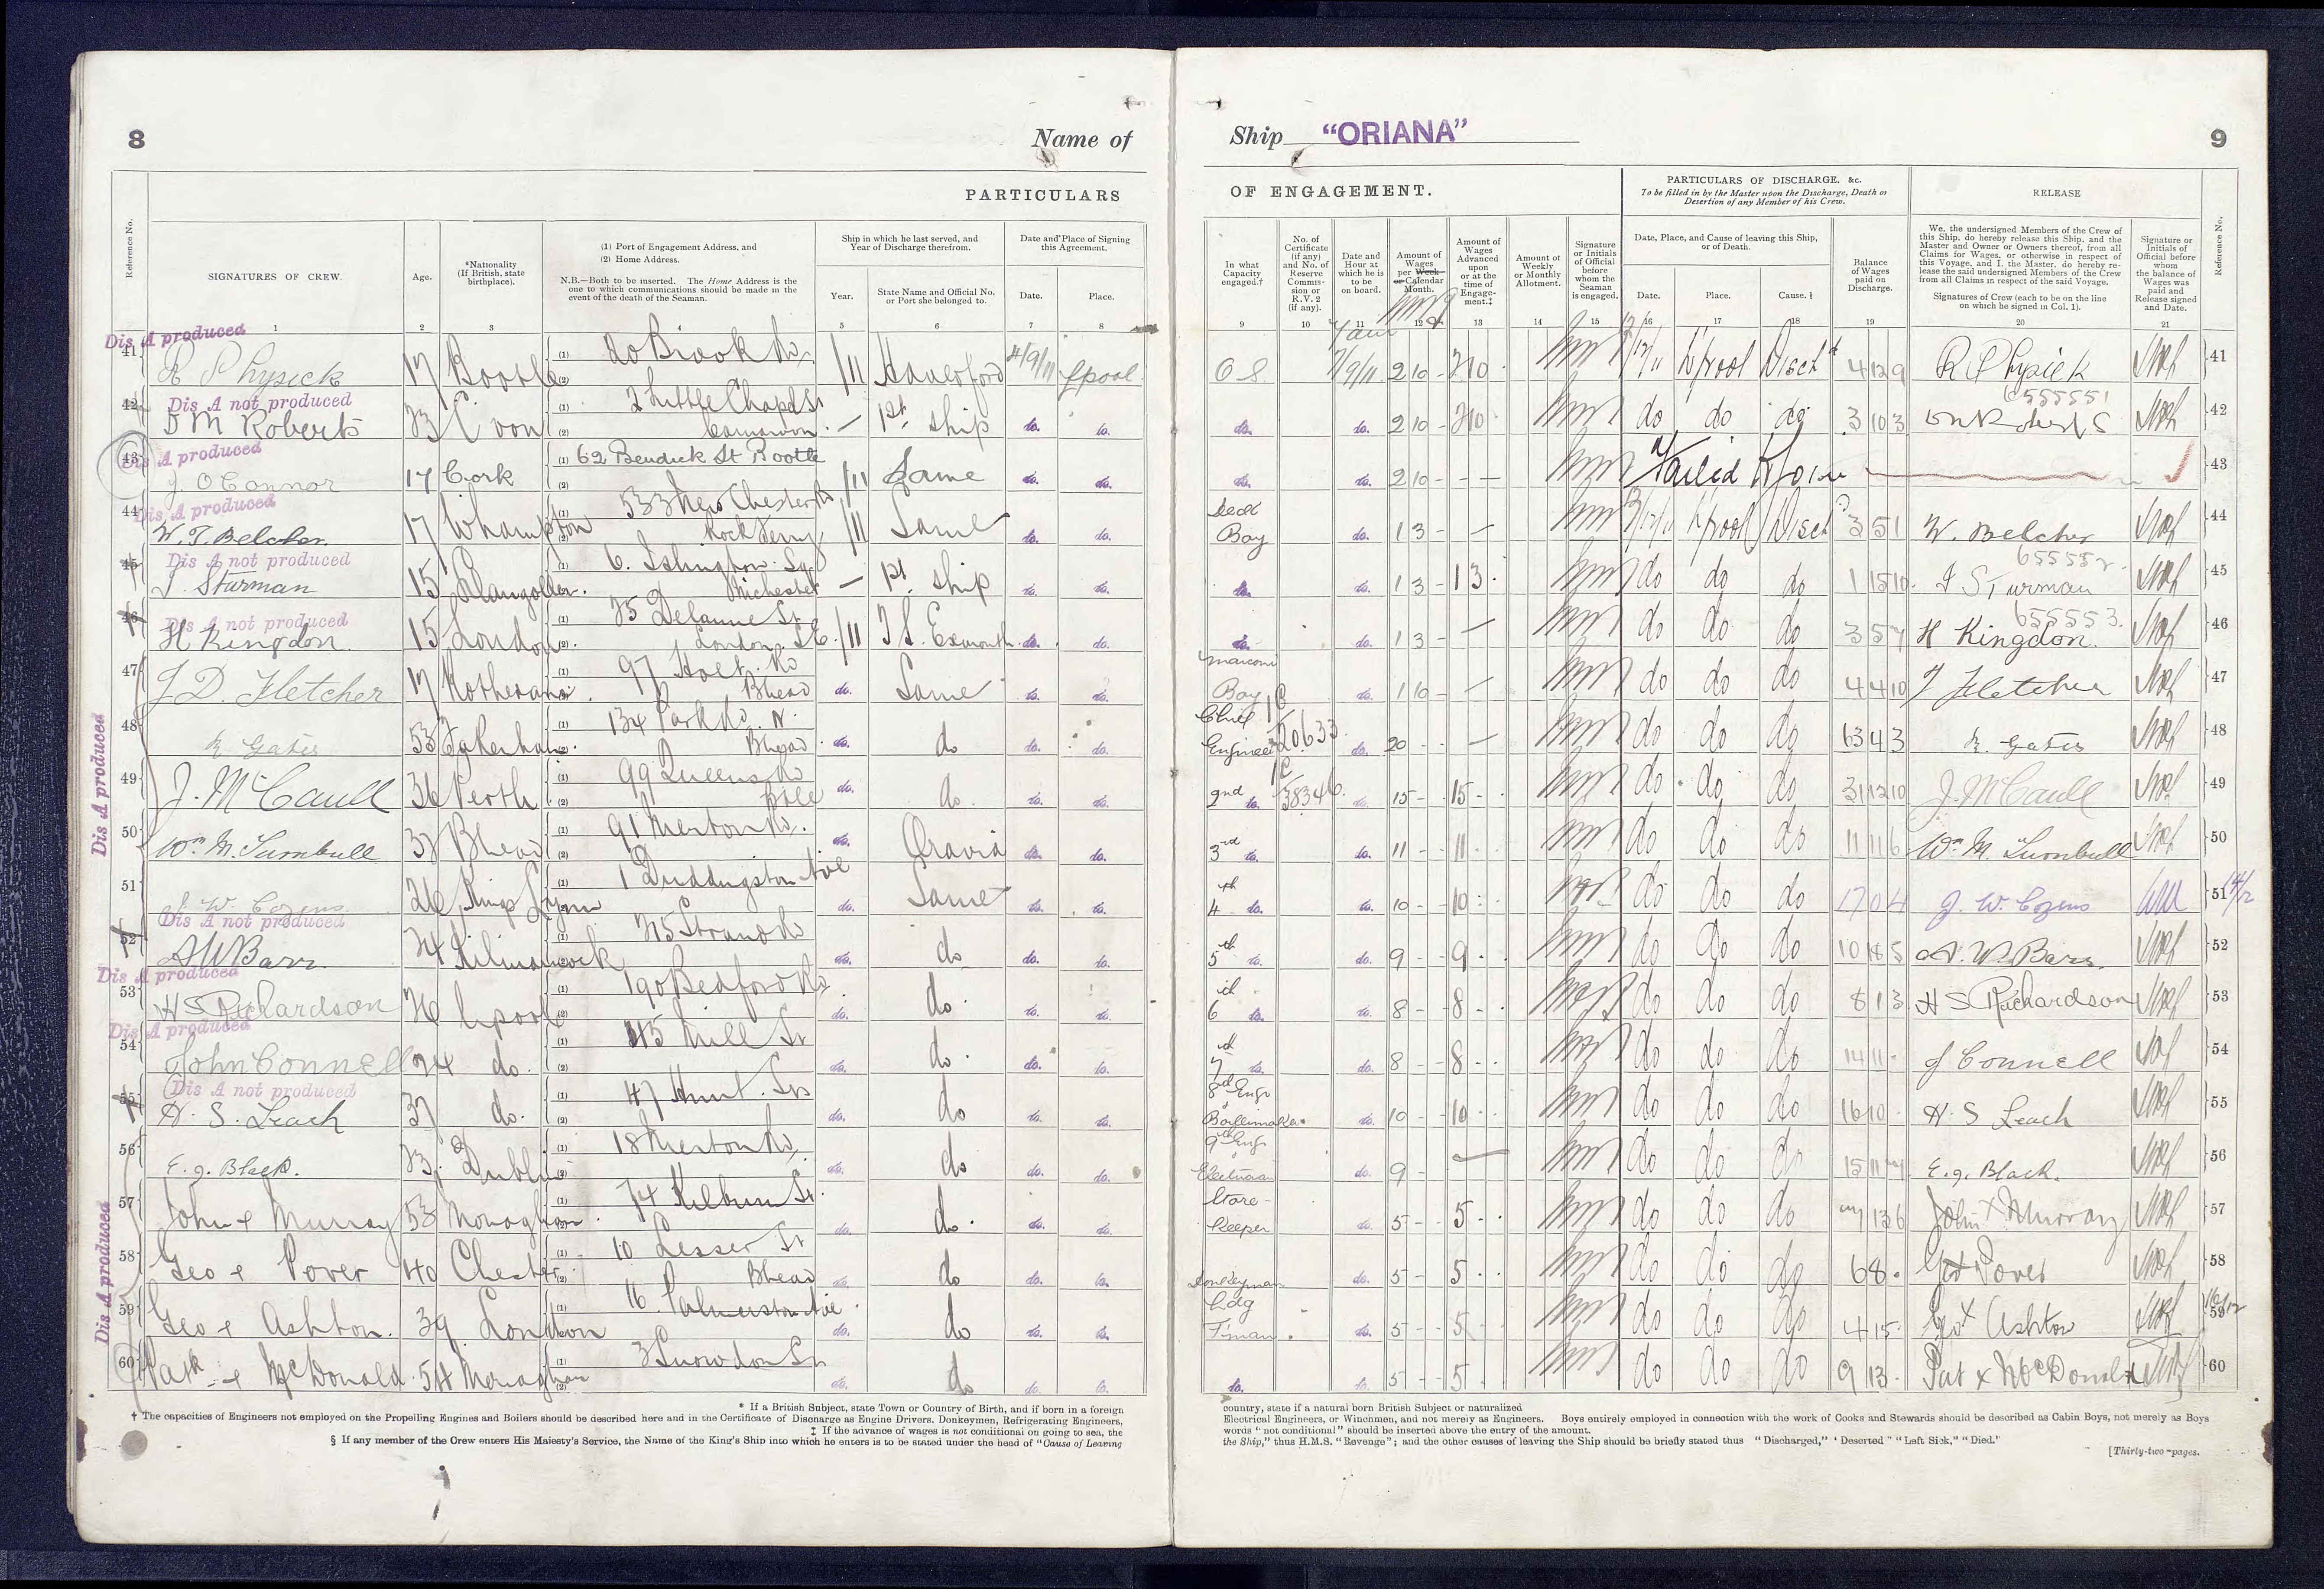 8
Name of
Ship "ORIANA"
9
PARTICULARS
OF ENGAGEMENT.
PARTICULARS OF DISCHARGE, &c.
To be filled in by the Master upon the Discharge, Death or
Desertion of any Member of his Crew.
RELEASE
Reference No.
SIGNATURES OF CREW.
Age.
*Nationality
(If British, state
birthplace).
(1) Port of Engagement Address, and
(2) Home Address.
N.B.—Both to be inserted. The Home Address is the
one to which communications should be made in the
event of the death of the Seaman.
Ship in which he last served, and
Year of Discharge therefrom.
Year.
State Name and Official No.
or Port she belonged to.
Date and Place of Signing
this Agreement.
Date.
Place.
In what
Capacity
engaged.†
No. of
Certificate
(if any)
and No. of
Reserve
Commis-
sion or
R.V. 2
(if any).
Date and
Hour at
which he is
to be
on board.
Amount of
Wages
per Week
or Calendar
Month.
Amount of
Wages
Advanced
upon
or at the
time of
Engage-
ment.‡
Amount of
Weekly
or Monthly
Allotment.
Signature
or Initials
of Official
before
whom the
Seaman
is engaged.
Date, Place, and Cause of leaving this Ship,
or of Death.
Date.
Place.
Cause. §
Balance
of Wages
paid on
Discharge.
We, the undersigned Members of the Crew of
this Ship, do hereby release this Ship, and the
Master and Owner or Owners thereof, from all
Claims for Wages, or otherwise in respect of
this Voyage, and I, the Master, do hereby re-
lease the said undersigned Members of the Crew
from all Claims in respect of the said Voyage.
Signatures of Crew (each to be on the line
on which he signed in Col. 1).
Signature or
Initials of
Official before
whom
the balance of
Wages was
paid and
Release signed
and Date.
Reference No.
1 2 3 5 6 7 8 9 10 11 12 13 14 15 16 17 18 19 20 21
Dis A produced
41 R Physick 17 Bootle 20 Brook Rd /11 Haverford 4/9/11 Lpool O S 7/9/11 2 10 - 2 10 Lpool Disch 4 12 9 R Physick 41
Dis A not produced
42 D M Roberts 23 C'von 2 Little Chapel St Carnarvon — 1st ship do. do. do. do. 2 10 - 2 10 do do do 3 10 3 655551 42
Dis A produced
43 J O Connor 17 Cork 62 Bendick St Bootle /11 Same do. do. do. do. 2 10 - — Failed to Join 43
Dis A produced
44 W. T. Belcher 17 Whampton 533 New Chester Rd Rock Ferry /11 Same do. do. Deck Boy do. 1 3 - — Lpool Disch 3 5 1 W. Belcher 44
Dis A not produced
45 J. Sturman 15 Llangollen 6. Islington Sq — 1st ship do. do. do. do. 1 3 - 1 3 do do do 1 15 10 J Sturman 655552 45
Dis A not produced
46 H Kingdon. 15 London 25 Delaune St London. S E. /11 T. S. Exmouth do. do. do. do. 1 3 - — do do do 3 5 7 H Kingdon. 655553. 46
47 J D. Fletcher 17 Rotherham 97 Holt Rd Bhead do. Same do. do. Marconi Boy do. 1 10 - — do do do 4 4 10 J Fletcher 47
Dis A produced
48 R Gates 53 134 Park Rd. N. Bhead do. do do. do. Chief Engineer 20633 do. 20 - — do do do 63 4 3 R. Gates 48
49 J. McCaull 36 Perth 99 Queens Rd do. do. do. do. 2nd do. 38346 do. 15 - 15 - do do do 31 12 10 J. McCaull 49
50 Wm M. Turnbull 37 Bhead 91 Merton Rd. do. Oravia do. do. 3rd do. do. 11 - 11 - do do do 11 11 6 Wm M. Turnbull 50
51 J W Cozens 26 Kings Lynn 1 Duddingston Ave do. Same do. do. 4th do. do. 10 - 10 do do do 17 0 4 J. W. Cozens 51
Dis A not produced
52 A W Barr 24 Kilmarnock 25 Strand Rd do. do do. do. 5th do. do. 9 - 9 do do do 10 18 5 A. W. Barr. 52
Dis A produced
53 H S Richardson 26 Lpool 190 Bedford Rd do. do do. do. 6th do. do. 8 - 8 - do do do 8 1 3 H S Richardson 53
Dis A produced
54 John Connell 24 do. 45 Mill St do. do. do. do. 7th do. do. 8 - 8 - do do do 14 11 - J Connell 54
Dis A not produced
55 H. S. Leach 37 do. 47 Hunt. St do. do do. do. 8th Engr & Boilermaker do. 10 - 10 do do do 16 10 H. S Leach 55
56 E. J. Black. 23 Dublin 18 Merton Rd do. do do. do. 9th Engr Electrician do. 9 - — do do do 15 11 E. J. Black. 56
Dis A produced
57 John x Murray 53 Monaghan 74 Kilburn St. do. do. do. do. Store-Keeper do. 5 - 5 - do do do 13 6 John x Murray 57
58 Geo x Pover 40 Chester 10 Lesser St Bhead do. do do. do. Donkeyman do. 5 - 5 do do do 6 8 Geo x Pover 58
59 Geo x Ashton. 39 London 16 Palmerston Ave do. do do. do. Ldg F'man do. 5 - 5 do do do 4 15 Geo x Ashton 59
60 Patk x McDonald 54 Monaghan 3 Snowdon St do. do do. do. do. do. 5 - 5 do do do 9 13 Pat x McDonald 60
* If a British Subject, state Town or Country of Birth, and if born in a foreign
country, state if a natural born British Subject or naturalized
† The capacities of Engineers not employed on the Propelling Engines and Boilers should be described here and in the Certificate of Discharge as Engine Drivers, Donkeymen, Refrigerating Engineers,
Electrical Engineers, or Winchmen, and not merely as Engineers. Boys entirely employed in connection with the work of Cooks and Stewards should be described as Cabin Boys, not merely as Boys
‡ If the advance of wages is not conditional on going to sea, the
words "not conditional" should be inserted above the entry of the amount.
§ If any member of the Crew enters His Majesty's Service, the Name of the King's Ship into which he enters is to be stated under the head of "Cause of Leaving
the Ship," thus H.M.S. "Revenge"; and the other causes of leaving the Ship should be briefly stated thus "Discharged," "Deserted" "Left Sick," "Died."
[Thirty-two-pages.